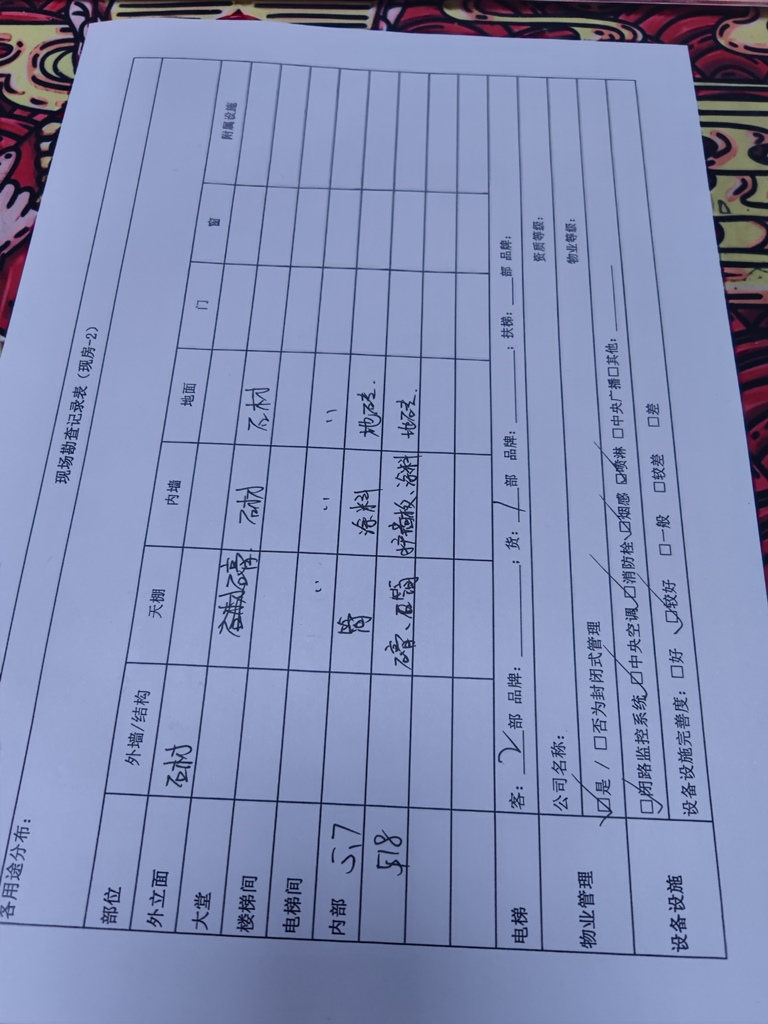 现场勘查记录表（现房-2）
各用途分布：
部位 外墙/结构 天棚 内墙 地面 门 窗 附属设施
外立面 石材
大堂 石膏 石材 石材
楼梯间
电梯间 〃 〃 〃
内部 517 涂料 地砖.
518 石膏、 涂料 地砖.
电梯 客：2部 品牌： ；货：1部 品牌： ；扶梯： 部 品牌：
物业管理 公司名称： 资质等级：
☑是 / □否为封闭式管理 物业等级：
设备设施 ☑闭路监控系统☑中央空调☑消防栓☑烟感☑喷淋□中央广播□其他：
设备设施完善度：□好 ☑较好 □一般 □较差 □差